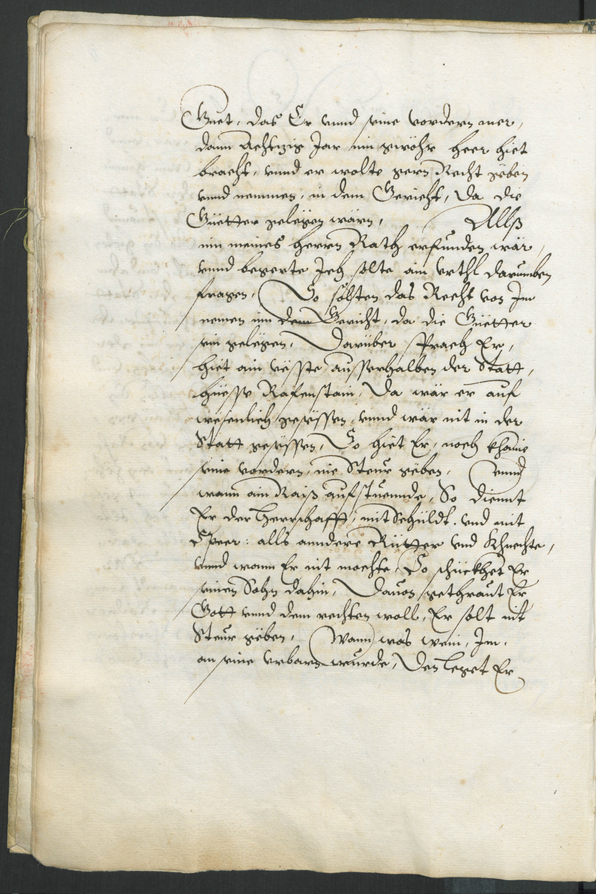 Guet, das Er vnnd seine vordern mer,
dann Achtzig Jar inn gwöhr heer hiet
bracht, vnnd er wolte gern Recht geben
vnnd nemmen, in dem Gericht, Da die
Güetter gelegen wärn, Allß
nun meines herrn Rath erfunden wär,
vnnd begerte Ich solte ain vrthl darumben
fragen, So solten das Recht von Im
nemen inn dem Gericht, da die Güetter
sein gelegen, Darüber sprach Er,
hiet ain vesste ausserhalben der Statt,
hiesse Rafenstain, Da wär er auf
wesenlich gesessen, vnnd wär nit in der
Statt gesessen, So hiet Er, noch khaine
seine vordern, nie Steur geben, vnnd
wann ain Raiß aufstuennde, So diennt
Er der Herrschafft, mit Schildt, vnd mit
Speer: alls anndere Ritter vnd Khnechte,
vnnd wann Er nit mochte, So schickhet Er
seinen Sohn dahin, Dauon gethraut Er
Gott vnnd dem rechten woll, Er solt nit
Steur geben, Wann was wein, Im,
an seine vrbarn wurde, Den leget Er